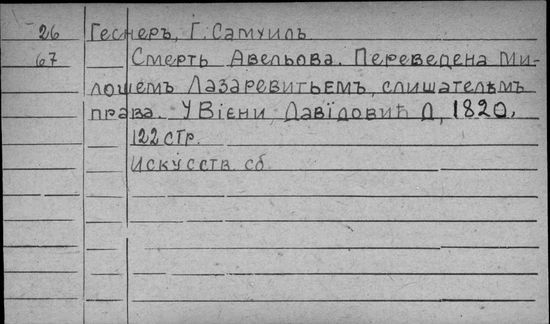 26 Геснеръ, Г. Самуиль
67 Смерть Авельова. Переведена Ми-
лошемъ Лазаревитьемъ, слишателѣмъ
права. У Віени, Давідовић Д, 1820,
122 стр.
Искусств. сб.